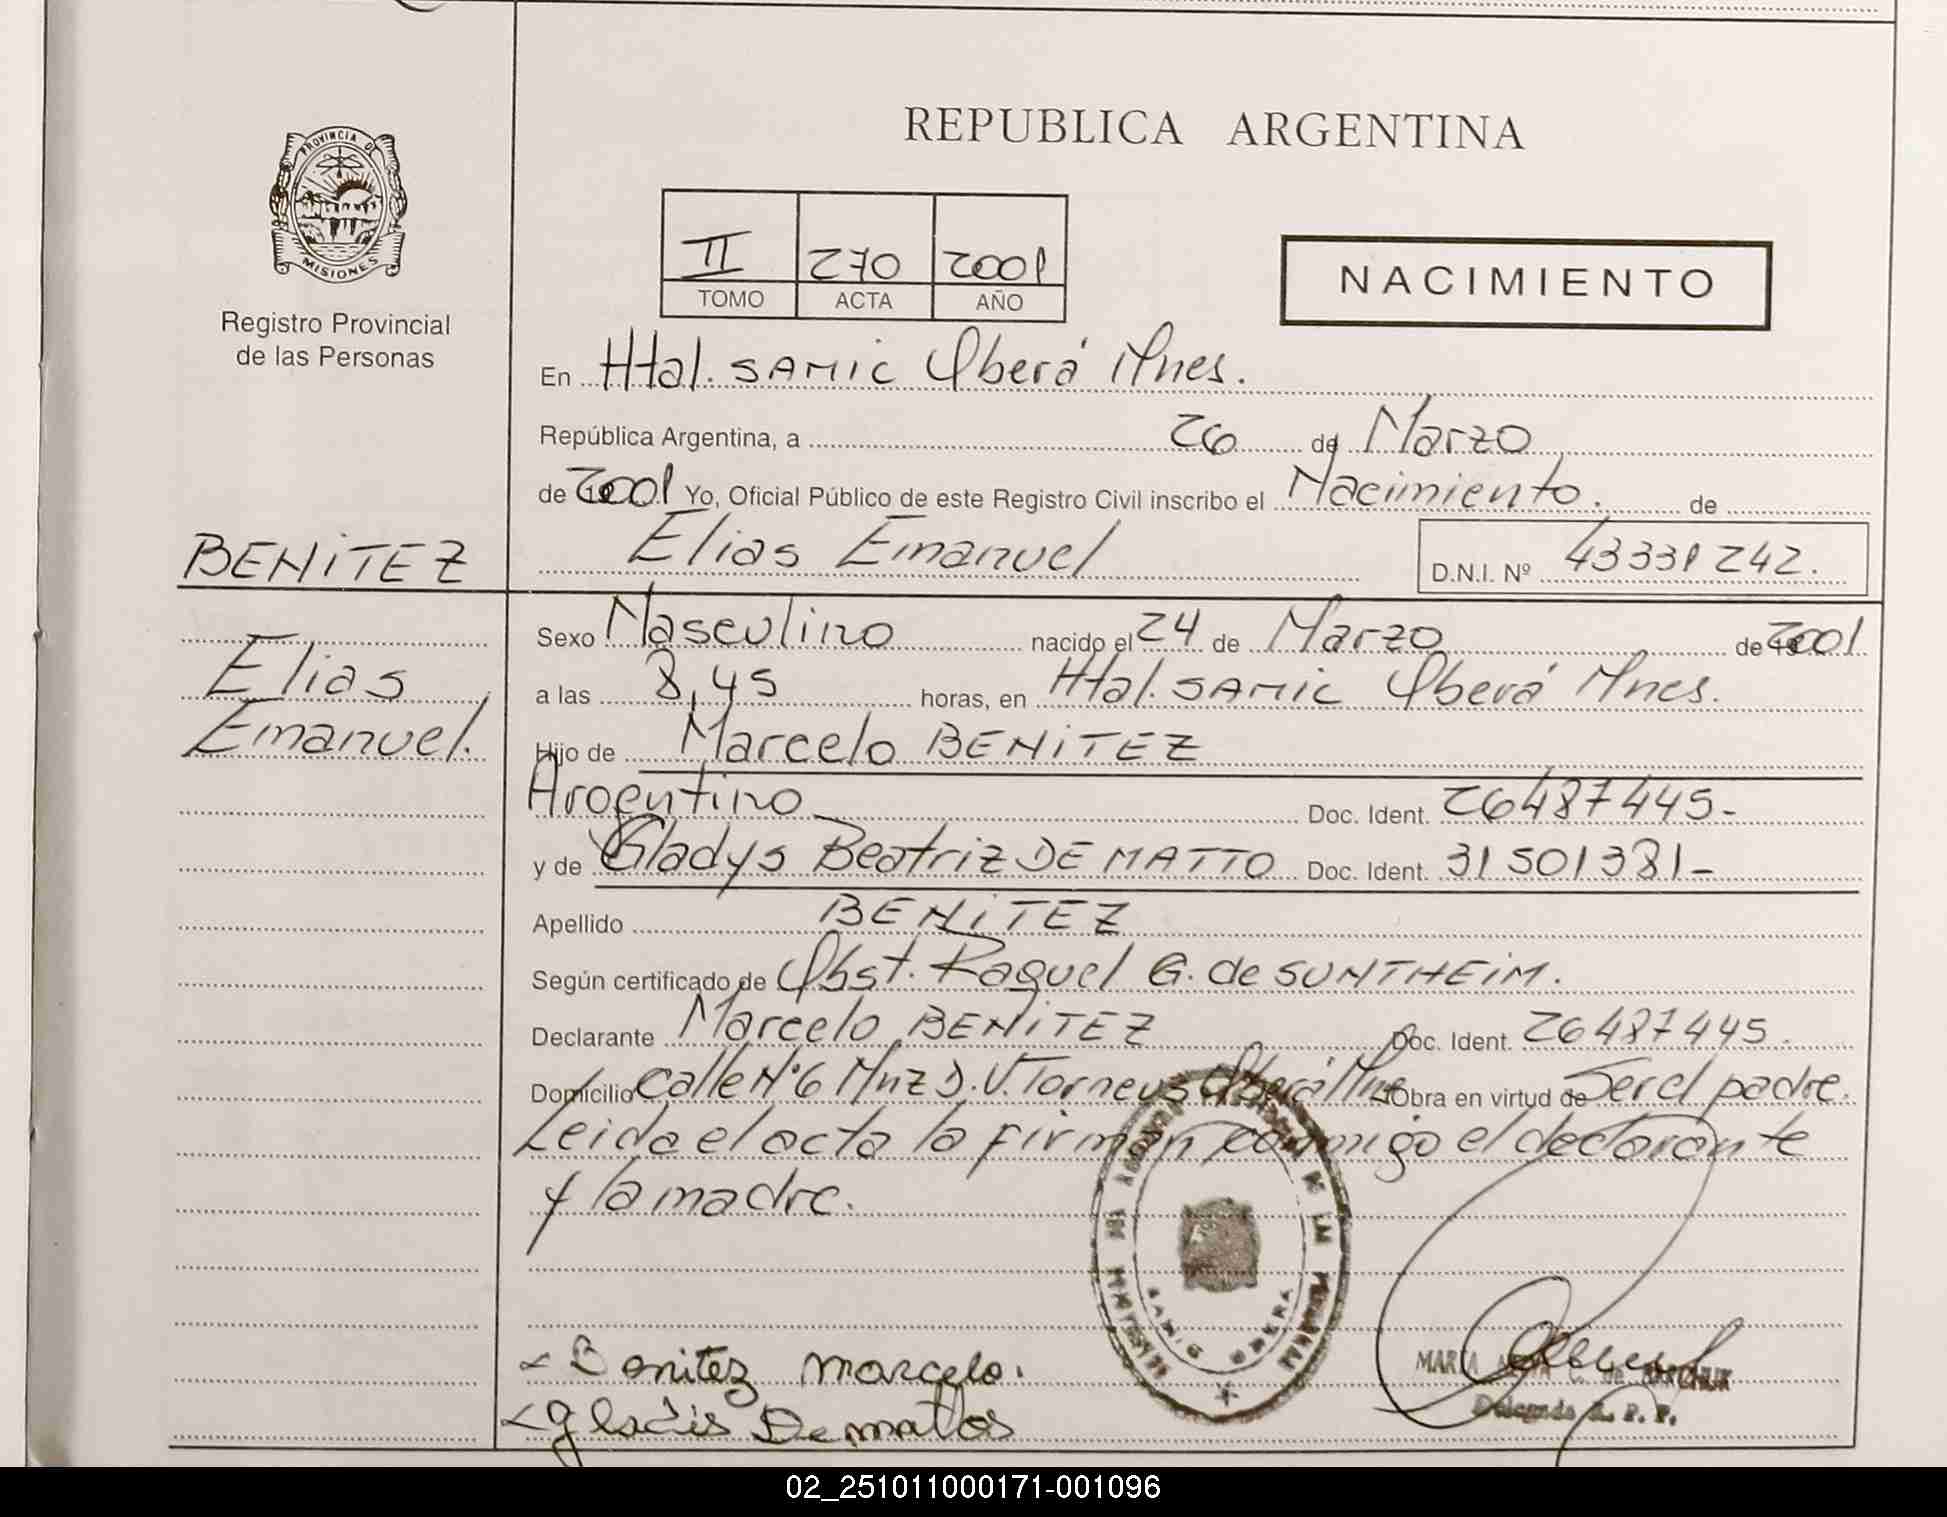 PROVINCIA DE
MISIONES
Registro Provincial
de las Personas
BENITEZ
Elias
Emanuel.
REPUBLICA ARGENTINA
II 270 2001
TOMO ACTA AÑO
NACIMIENTO
En Htal. SAMIC Oberá Mnes.
República Argentina, a 26 de Marzo
de 2001 Yo, Oficial Público de este Registro Civil inscribo el Nacimiento. de
Elias Emanuel D.N.I. Nº 43331242.
Sexo Masculino nacido el 24 de Marzo de 2001
a las 8,45 horas, en Htal. SAMIC Oberá Mnes.
Hijo de Marcelo BENITEZ
Argentino Doc. Ident. 26487445-
y de Gladys Beatriz DE MATTO Doc. Ident. 31501381-
Apellido BENITEZ
Según certificado de Obst. Raquel G. de SUNTHEIM.
Declarante Marcelo BENITEZ Doc. Ident. 26487445.
Domicilio Calle Nº6 Mnz D. V. Torneus Oberá Mnes Obra en virtud de Ser el padre.
Leida el acta la firman conmigo el declarante
y la madre.
Benitez marcelo.
gladis De mattos
MARTA
Delegada R. P. P.
SAMIC OBERA
02_251011000171-001096